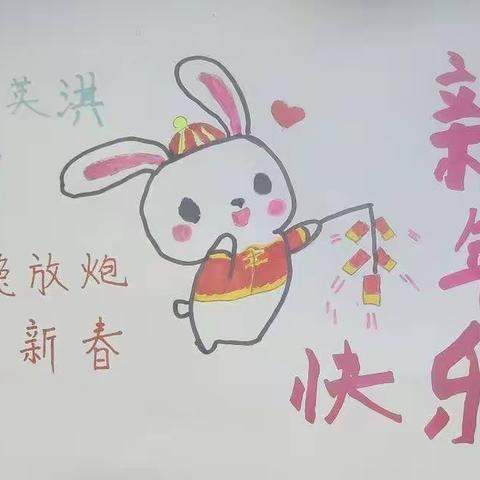 英洪
放炮
新春
新年
快乐